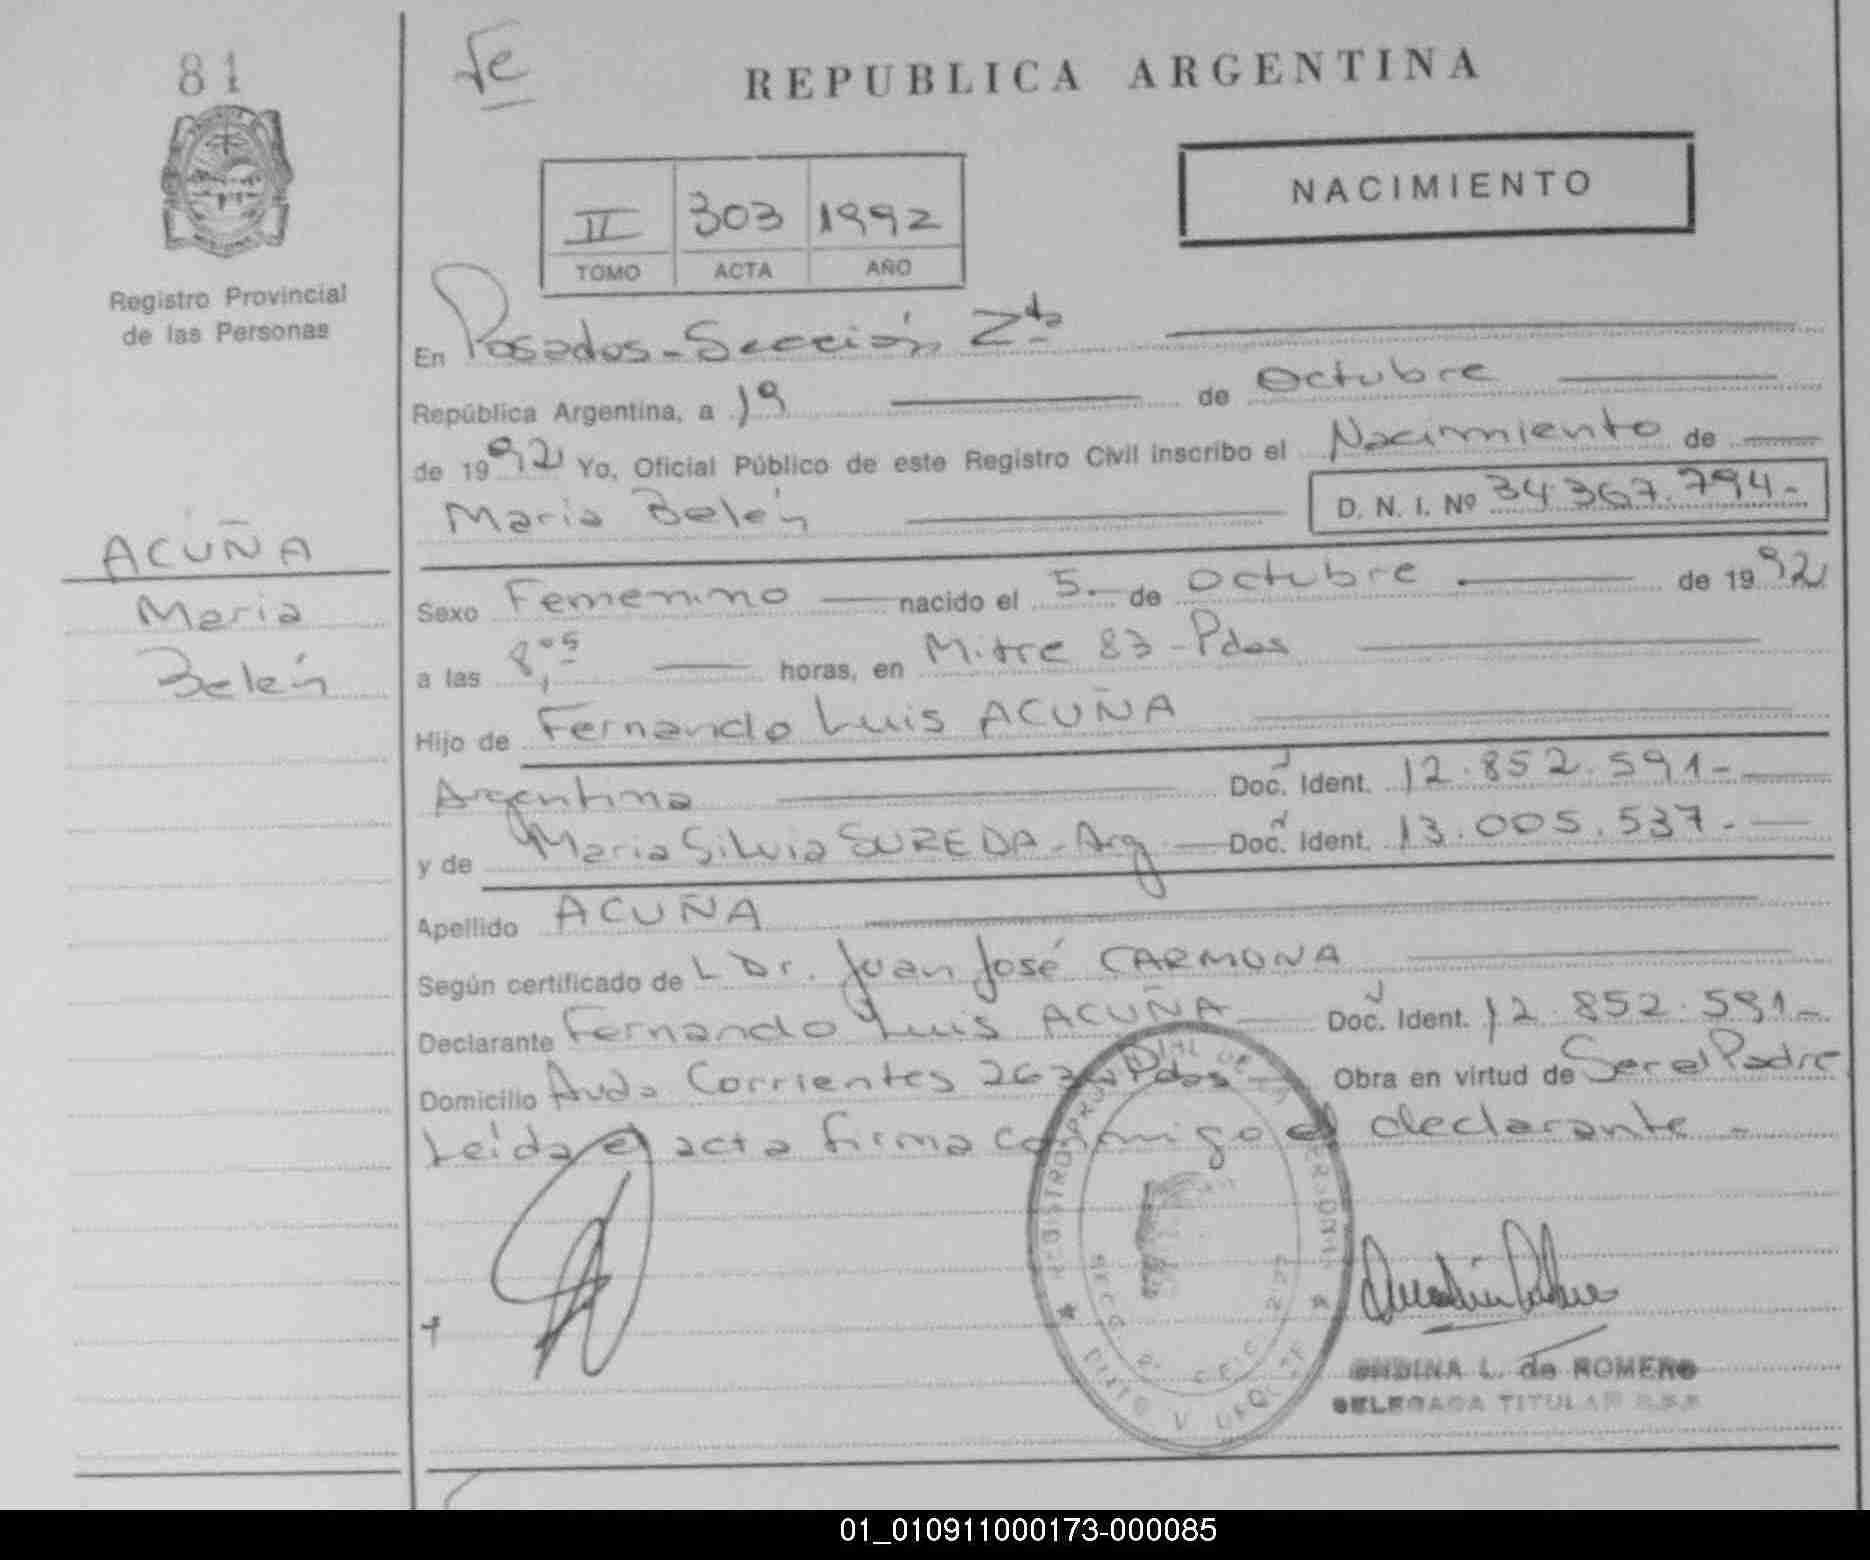 81
Fe
REPUBLICA ARGENTINA
NACIMIENTO
II 303 1992
TOMO ACTA AÑO
Registro Provincial
de las Personas
En Posadas - Sección 2da
República Argentina, a 19 de Octubre
de 1992 Yo, Oficial Público de este Registro Civil inscribo el Nacimiento de
Maria Belén D. N. I. Nº 34.367.794.-
ACUÑA
Maria
Belén
Sexo Femenino nacido el 5.- de Octubre de 1992
a las 8,05 horas, en Mitre 83 - Pdas
Hijo de Fernando Luis ACUÑA
Argentina Doc. Ident. 12.852.591-
y de Maria Silvia SUREDA - Arg Doc. Ident. 13.005.537.-
Apellido ACUÑA
Según certificado de L Dr. Juan José CARMONA
Declarante Fernando Luis ACUÑA Doc. Ident. 12.852.591-
Domicilio Avda Corrientes Pdas Obra en virtud de Ser el Padre
Leída el acta firma conmigo el declarante -
L. de ROMERO
DELEGADA TITULAR
01_010911000173-000085